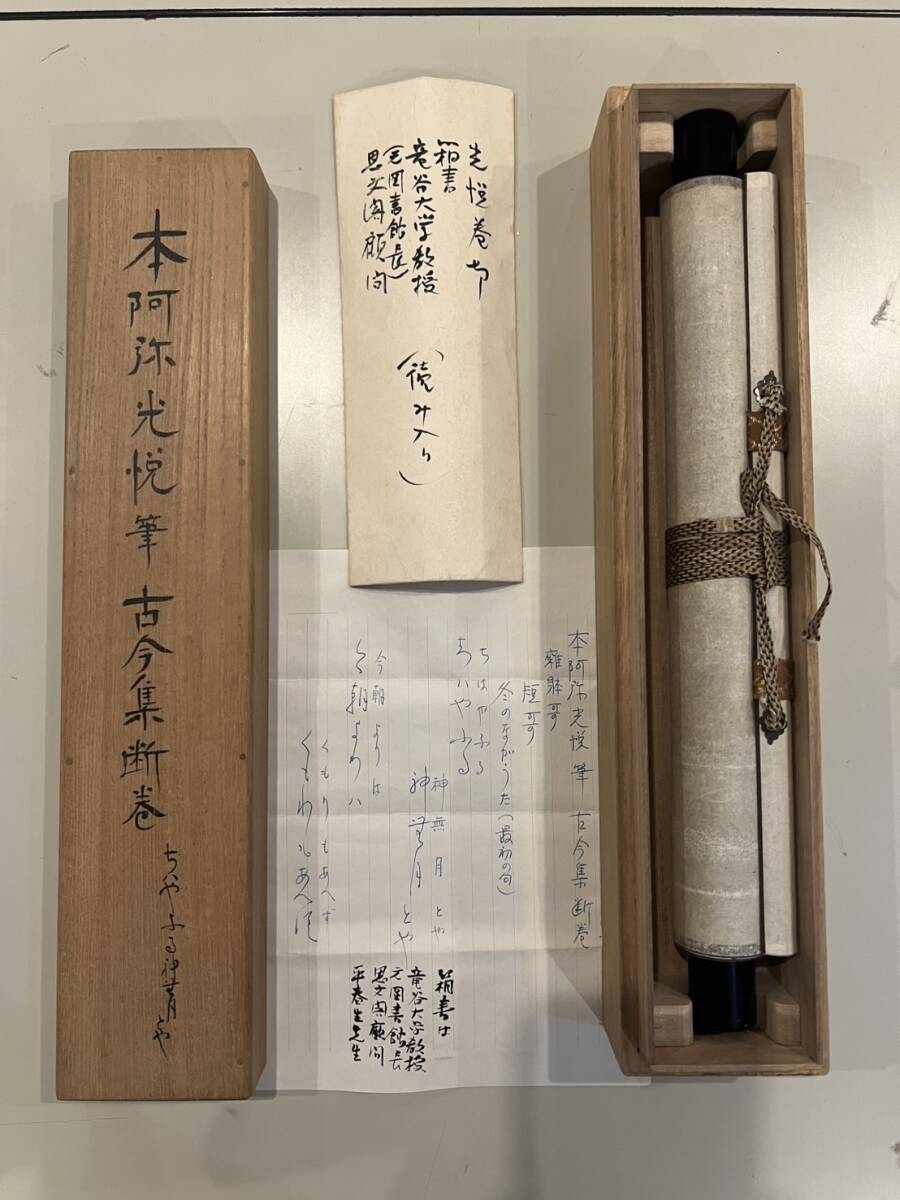 本阿弥光悦筆 古今集断巻
ちはやふる神無月とや
光悦巻切
箱書
竜谷大学教授
(元図書館長)
思文閣顧問
(読み入り)
本阿弥光悦筆 古今集断巻
雜躰哥
短哥
冬のながうた(最初の句)
ちはやふる
ちハやふる
神無月とや
神無月とや
今朝よりは
今朝よりハ
くもりもあへず
くもりもあへす
箱書は
竜谷大学教授
元図書館長
思文閣顧問
平春生先生